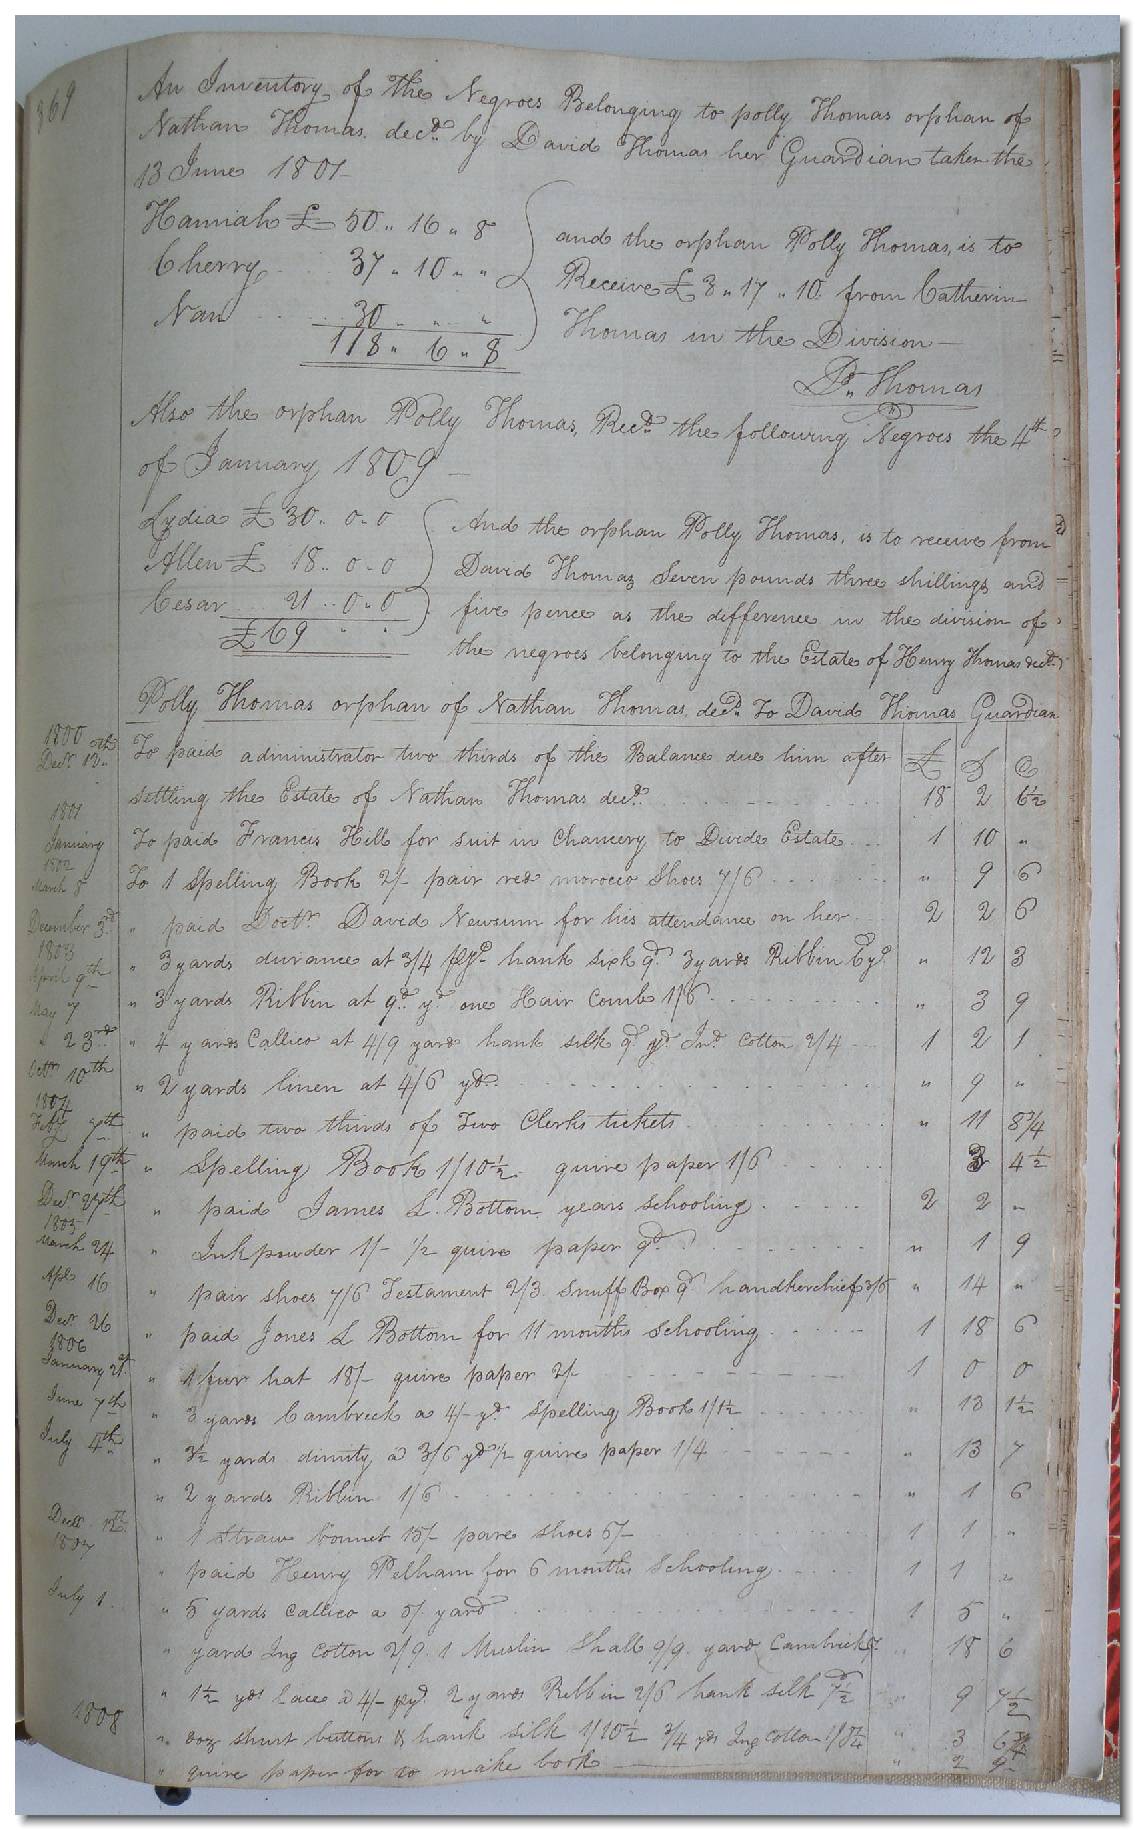 369
An Inventory of the Negroes Belonging to polly Thomas orphan of
Nathan Thomas decd. by David Thomas her Guardian taken the
13 June 1801
Hannah £ 50 „ 16 „ 8
Cherry 37 „ 10 „ „
Nan 30 „ „ „
118 „ 6 „ 8
and the orphan Polly Thomas, is to
Receive £ 3 „ 17 „ 10 from Catherin
Thomas in the Division —
Dd. Thomas
Also the orphan Polly Thomas, Recd. the following Negroes the 4th
of January 1809 —
Lydia £ 30 .. 0 - 0
Allen £ 18 .. 0 - 0
Cesar ... 21 .. 0 - 0
£ 69 „ „
And the orphan Polly Thomas, is to receive from
David Thomas Seven pounds three shillings and
five pence as the difference in the division of
the negroes belonging to the Estate of Henry Thomas decd.
Polly Thomas orphan of Nathan Thomas, decd. To David Thomas Guardian
1800
Decr. 13th To paid administrator two thirds of the Balance due him after £ S
settling the Estate of Nathan Thomas decd. 18 2 6½
1801
January To paid Francis Hill for suit in Chancery to Divide Estate 1 10 „
1802
March 8 To 1 Spelling Book 2/- pair red morocco Shoes 7/6 „ 9 6
December 3d „ paid Doctr. David Newsum for his attendance on her 2 2 6
1803
April 9th „ 3 yards durance at 3/4 hank silk 9d 3 yards Ribbin „ 12 3
May 7 „ 3 yards Ribbin at 9d. yd. one Hair Comb 1/6 „ 3 9
„ 23rd „ 4 yards Callico at 4/9 yard hank silk 9d Cotton 2/4 1 2 1
Octr. 10th „ 2 yards linen at 4/6 yd. „ 9 „
1804
7th „ paid two thirds of Two Clerks tickets „ 11 8¾
March 19th „ Spelling Book 1/10½ quire paper 1/6 3 4½
Decr. 27th „ paid James L. Bottom years schooling 2 2 „
1805
March 24 „ Ink powder 1/- ½ quire paper 9d. „ 1 9
Apl. 16 „ pair shoes 7/6 Testament 2/3 Snuff Box 9d handkerchief 3/6 „ 14 „
Decr. 26 „ paid Jones L Bottom for 11 months Schooling 1 18 6
1806
January „ 1 fur hat 18/- quire paper 2/- 1 0 0
June 7th „ 3 yards Cambrick a 4/- yd. Spelling Book 1/1½ „ 13 1½
July 4th „ 3½ yards dimity a 3/6 yd ½ quire paper 1/4 „ 13 7
„ 2 yards Ribbin 1/6 „ 1 6
Decr. „ 1 Straw bonnet 15/- pare shoes 6/- 1 1 „
1807
„ paid Henry Pelham for 6 months Schooling 1 1 „
July 1 „ 5 yards Callico a 5/. yard 1 5 „
„ yard Ing Cotton 2/9. 1 Muslin Shall 9/9. yard Cambrick „ 18 6
„ 1½ yds Lace a 4/- pyd. 2 yards Ribbin 2/6 hank silk 7½d „ 9 7½
1808
„ doz shurt buttons & hank silk 1/10½ ¾ yds Ing Cotton „ 3 6¾
„ quire paper for to make book „ 2 9